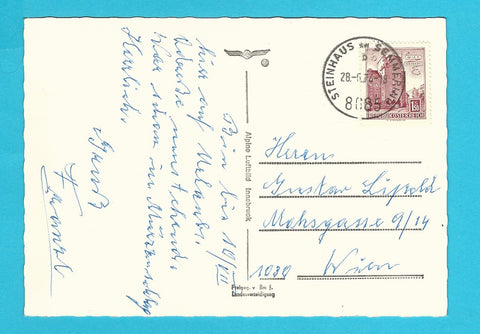 Bin bis 10/VII
hier auf Urlaub.
Adresse umstehend.
War schon in Mürzzuschlag
Herzlichst
Franzl
Alpine Luftbild Innsbruck
Freigeg. v. Bm f.
Landesverteidigung
STEINHAUS am SEMMERING
8685
REPUBLIK ÖSTERREICH
Herrn
Gustav Lipold
Mohsgasse 9/14
1030 Wien